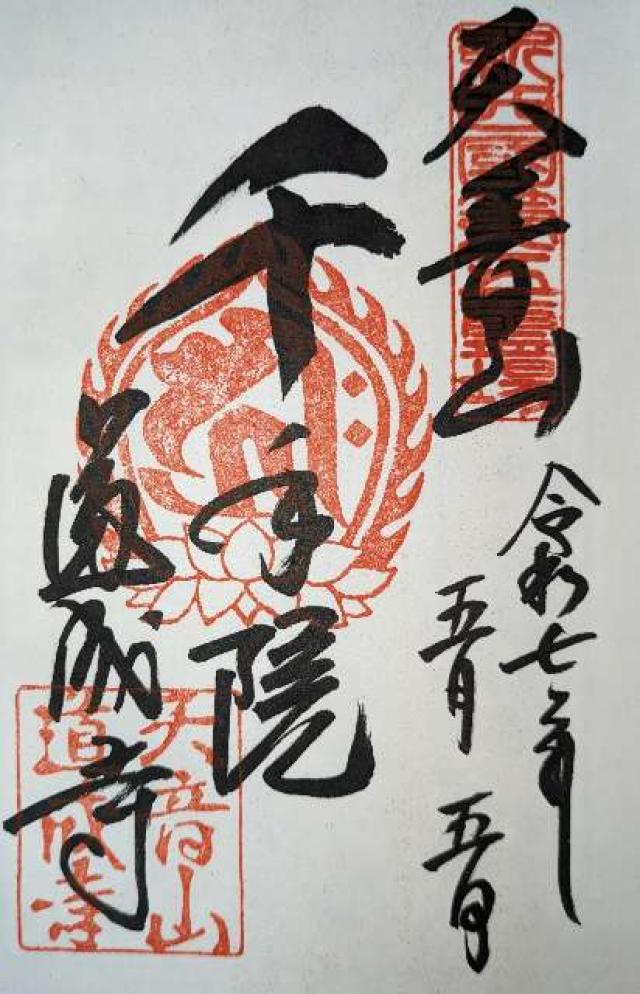 天音山
令和七年
五月 五日
千手院
道成寺
天音山
道成寺